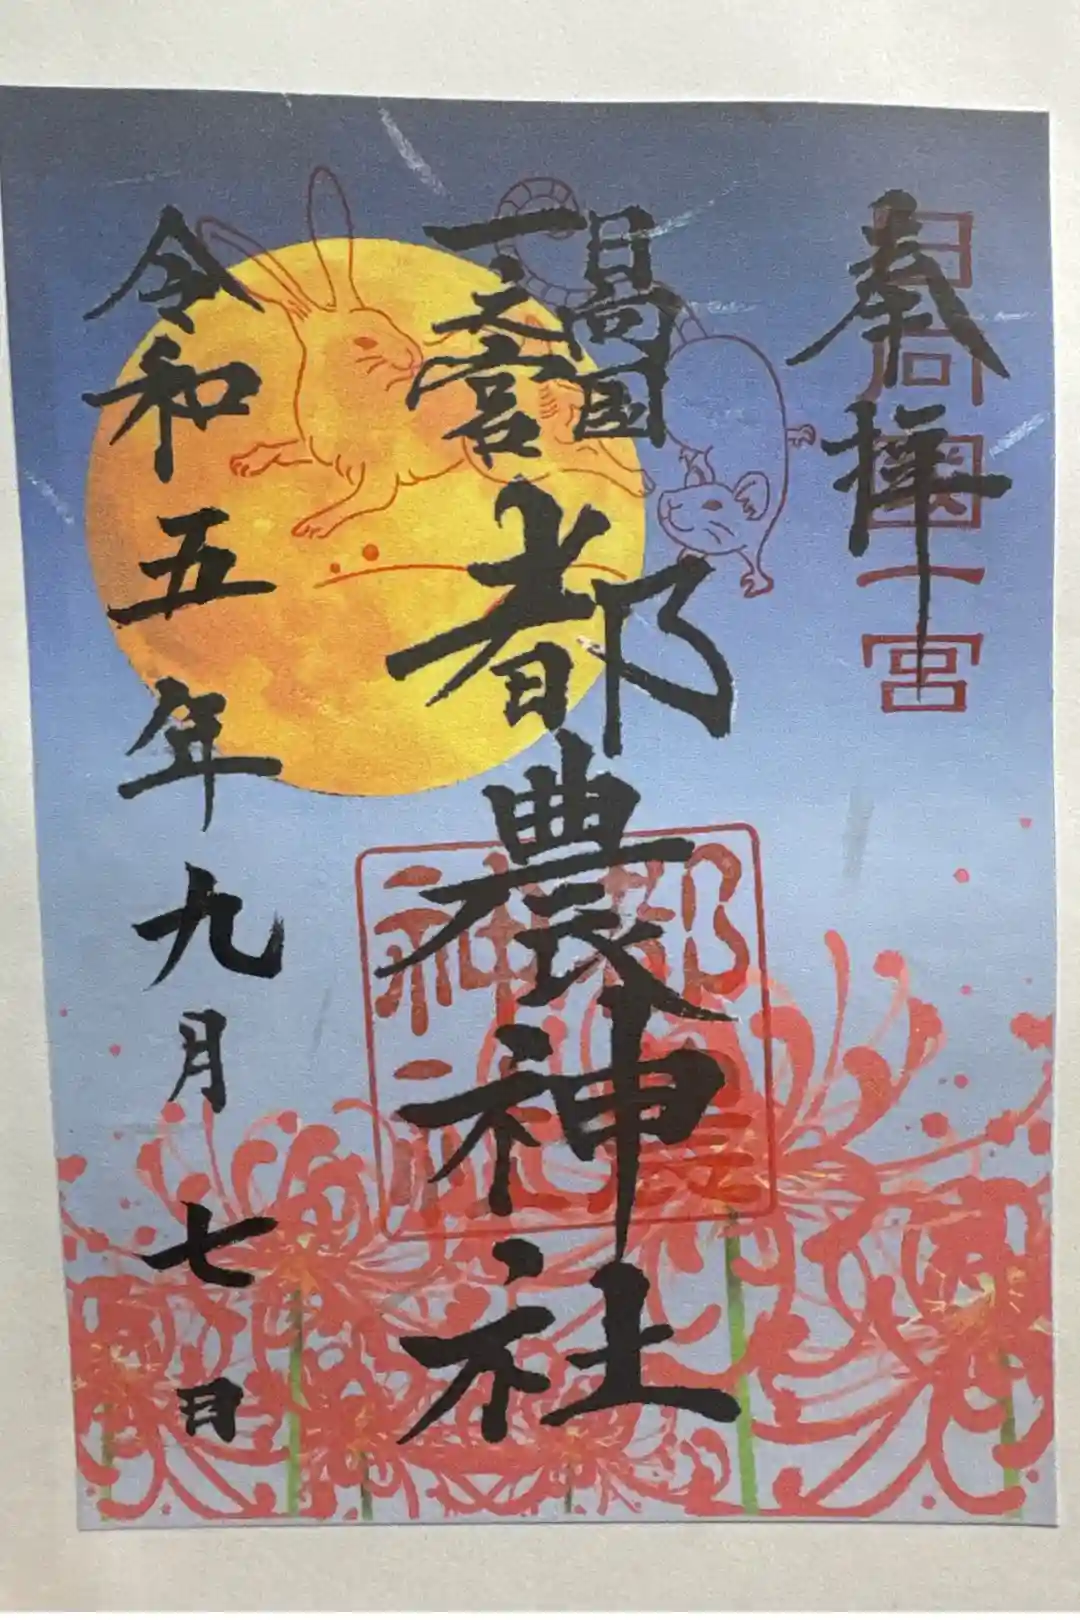 奉拝
日向國一宮
日向国
一之宮
都農神社
都農神社
令和五年九月七日